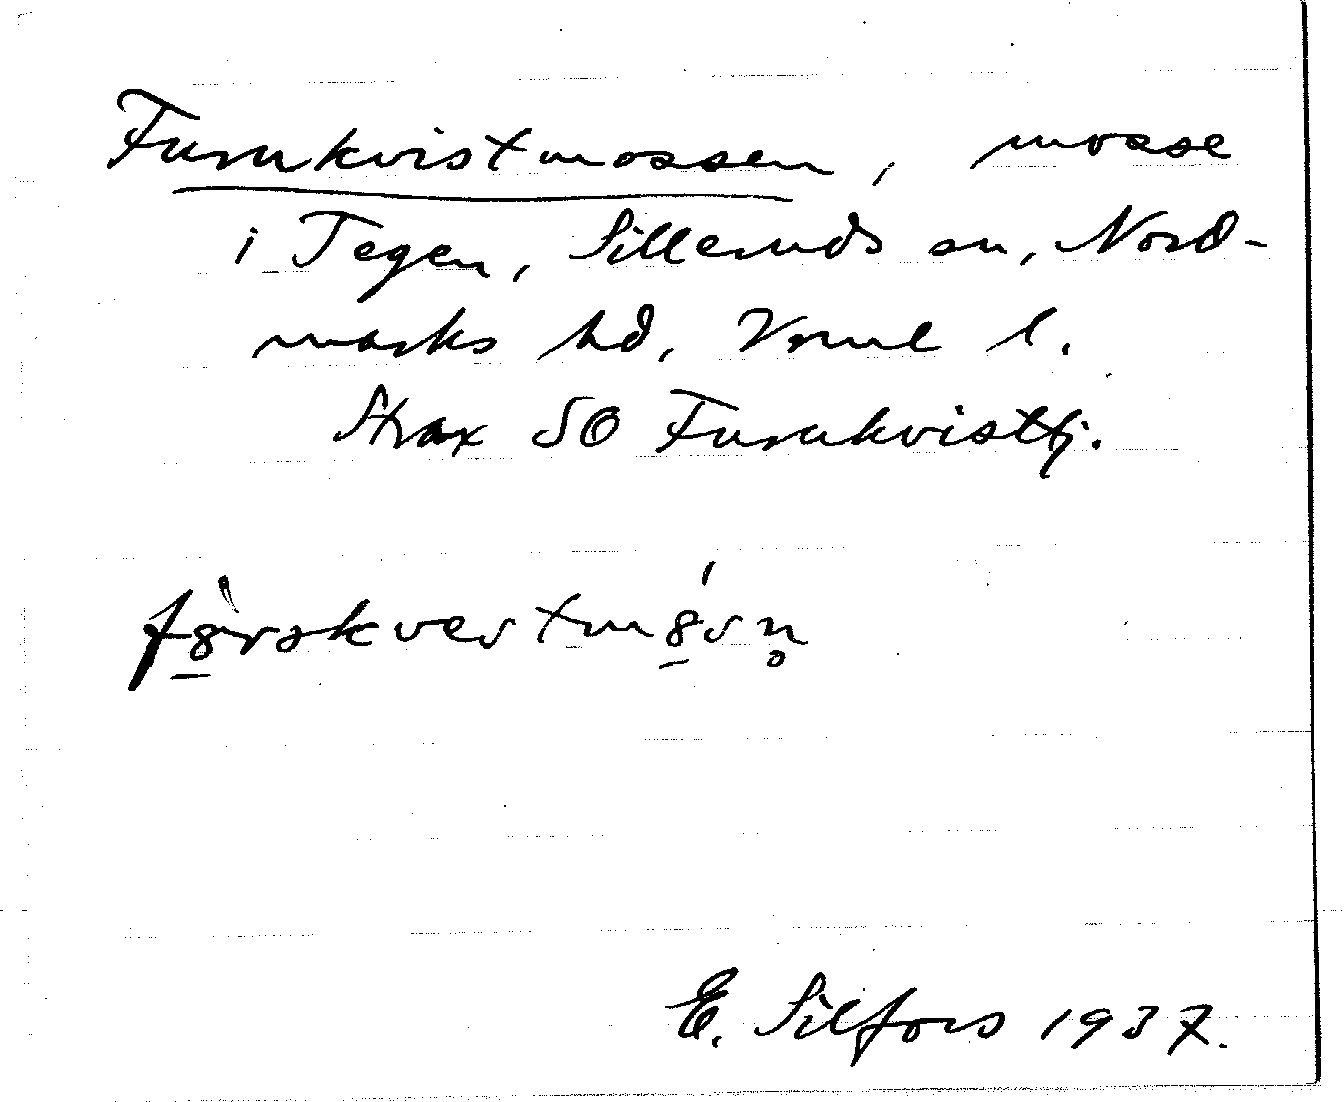 Furukvistmossen, mosse
i Tegen, Silleruds sn, Nord-
marks hd, Vrml l.
Strax SO Furukvisttj.
E. Silfors 1937.